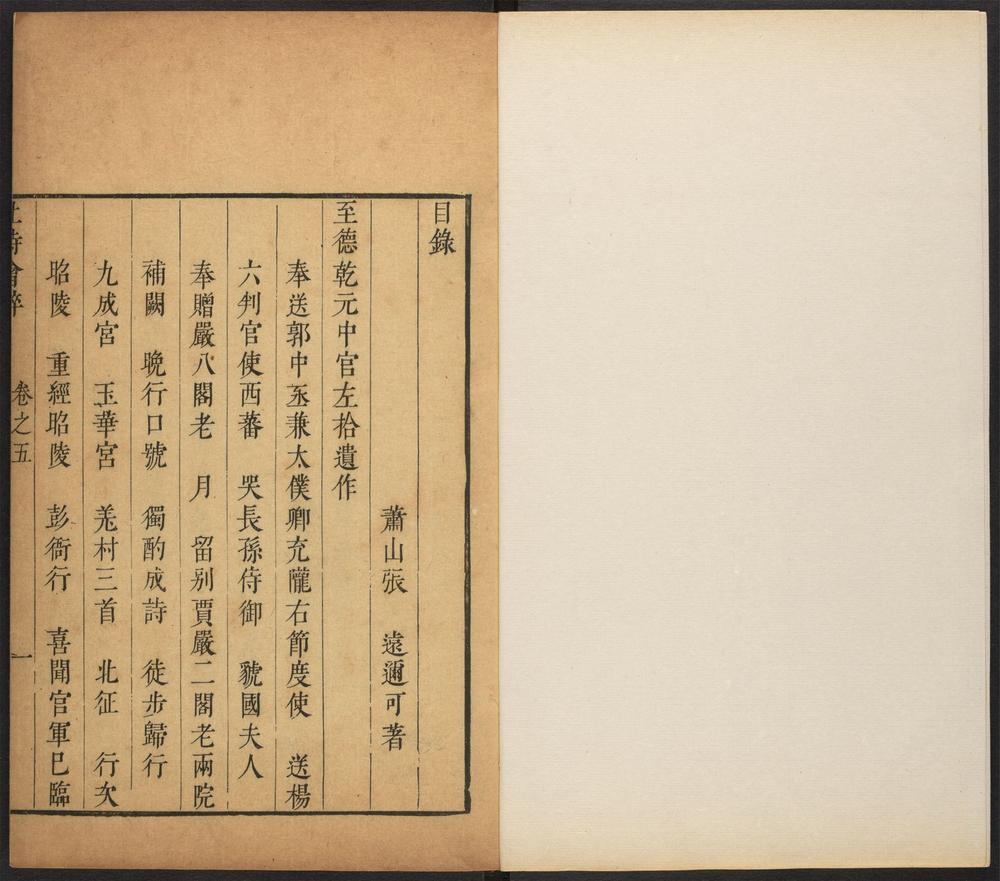 目錄
蕭山張　遠邇可著
至德乾元中官左拾遺作
奉送郭中丞兼太僕卿充隴右節度使　送楊
六判官使西蕃　哭長孫侍御　虢國夫人
奉贈嚴八閣老　月　留別賈嚴二閣老兩院
補闕　晚行口號　獨酌成詩　徒步歸行
九成宮　玉華宮　羗村三首　北征　行次
昭陵　重經昭陵　彭衙行　喜聞官軍已臨
詩會稡　卷之五　一